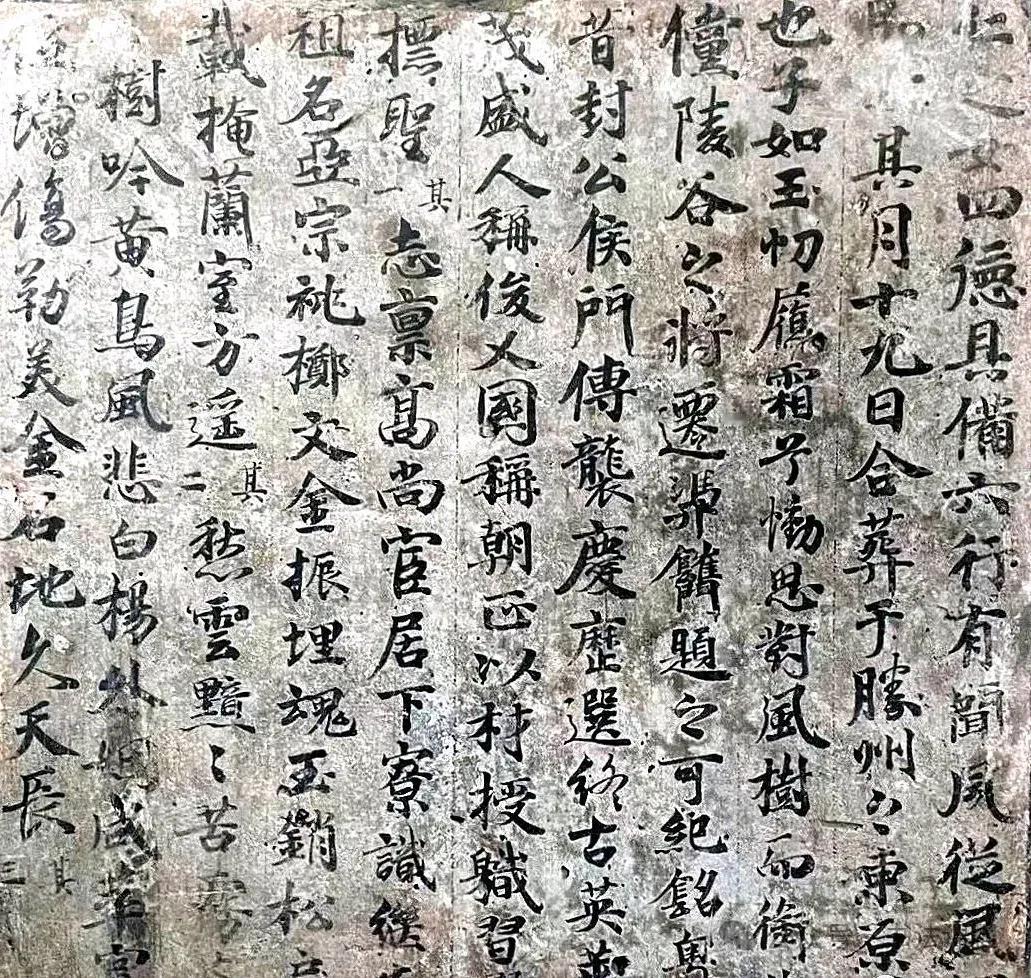 四德具備六行有聞風從風
其月十九日合葬于勝州之東原
也子如玉忉鴈霜兮慟思對風樹而銜
僮陵谷之將遷舉饎題之可紀銘粤
昔封公侯門傳襲慶歷選終古英
茂盛人稱俊乂國稱朝正以材授職習
摽聖其一志禀高尚官居下寮讖繼
祖名亞宗祧擲文金振埋魂玉銷松
載掩蘭室方遥其二愁雲黯々苦霧
樹吟黃鳥風悲白楊
增傷勒美金石地久天長其三